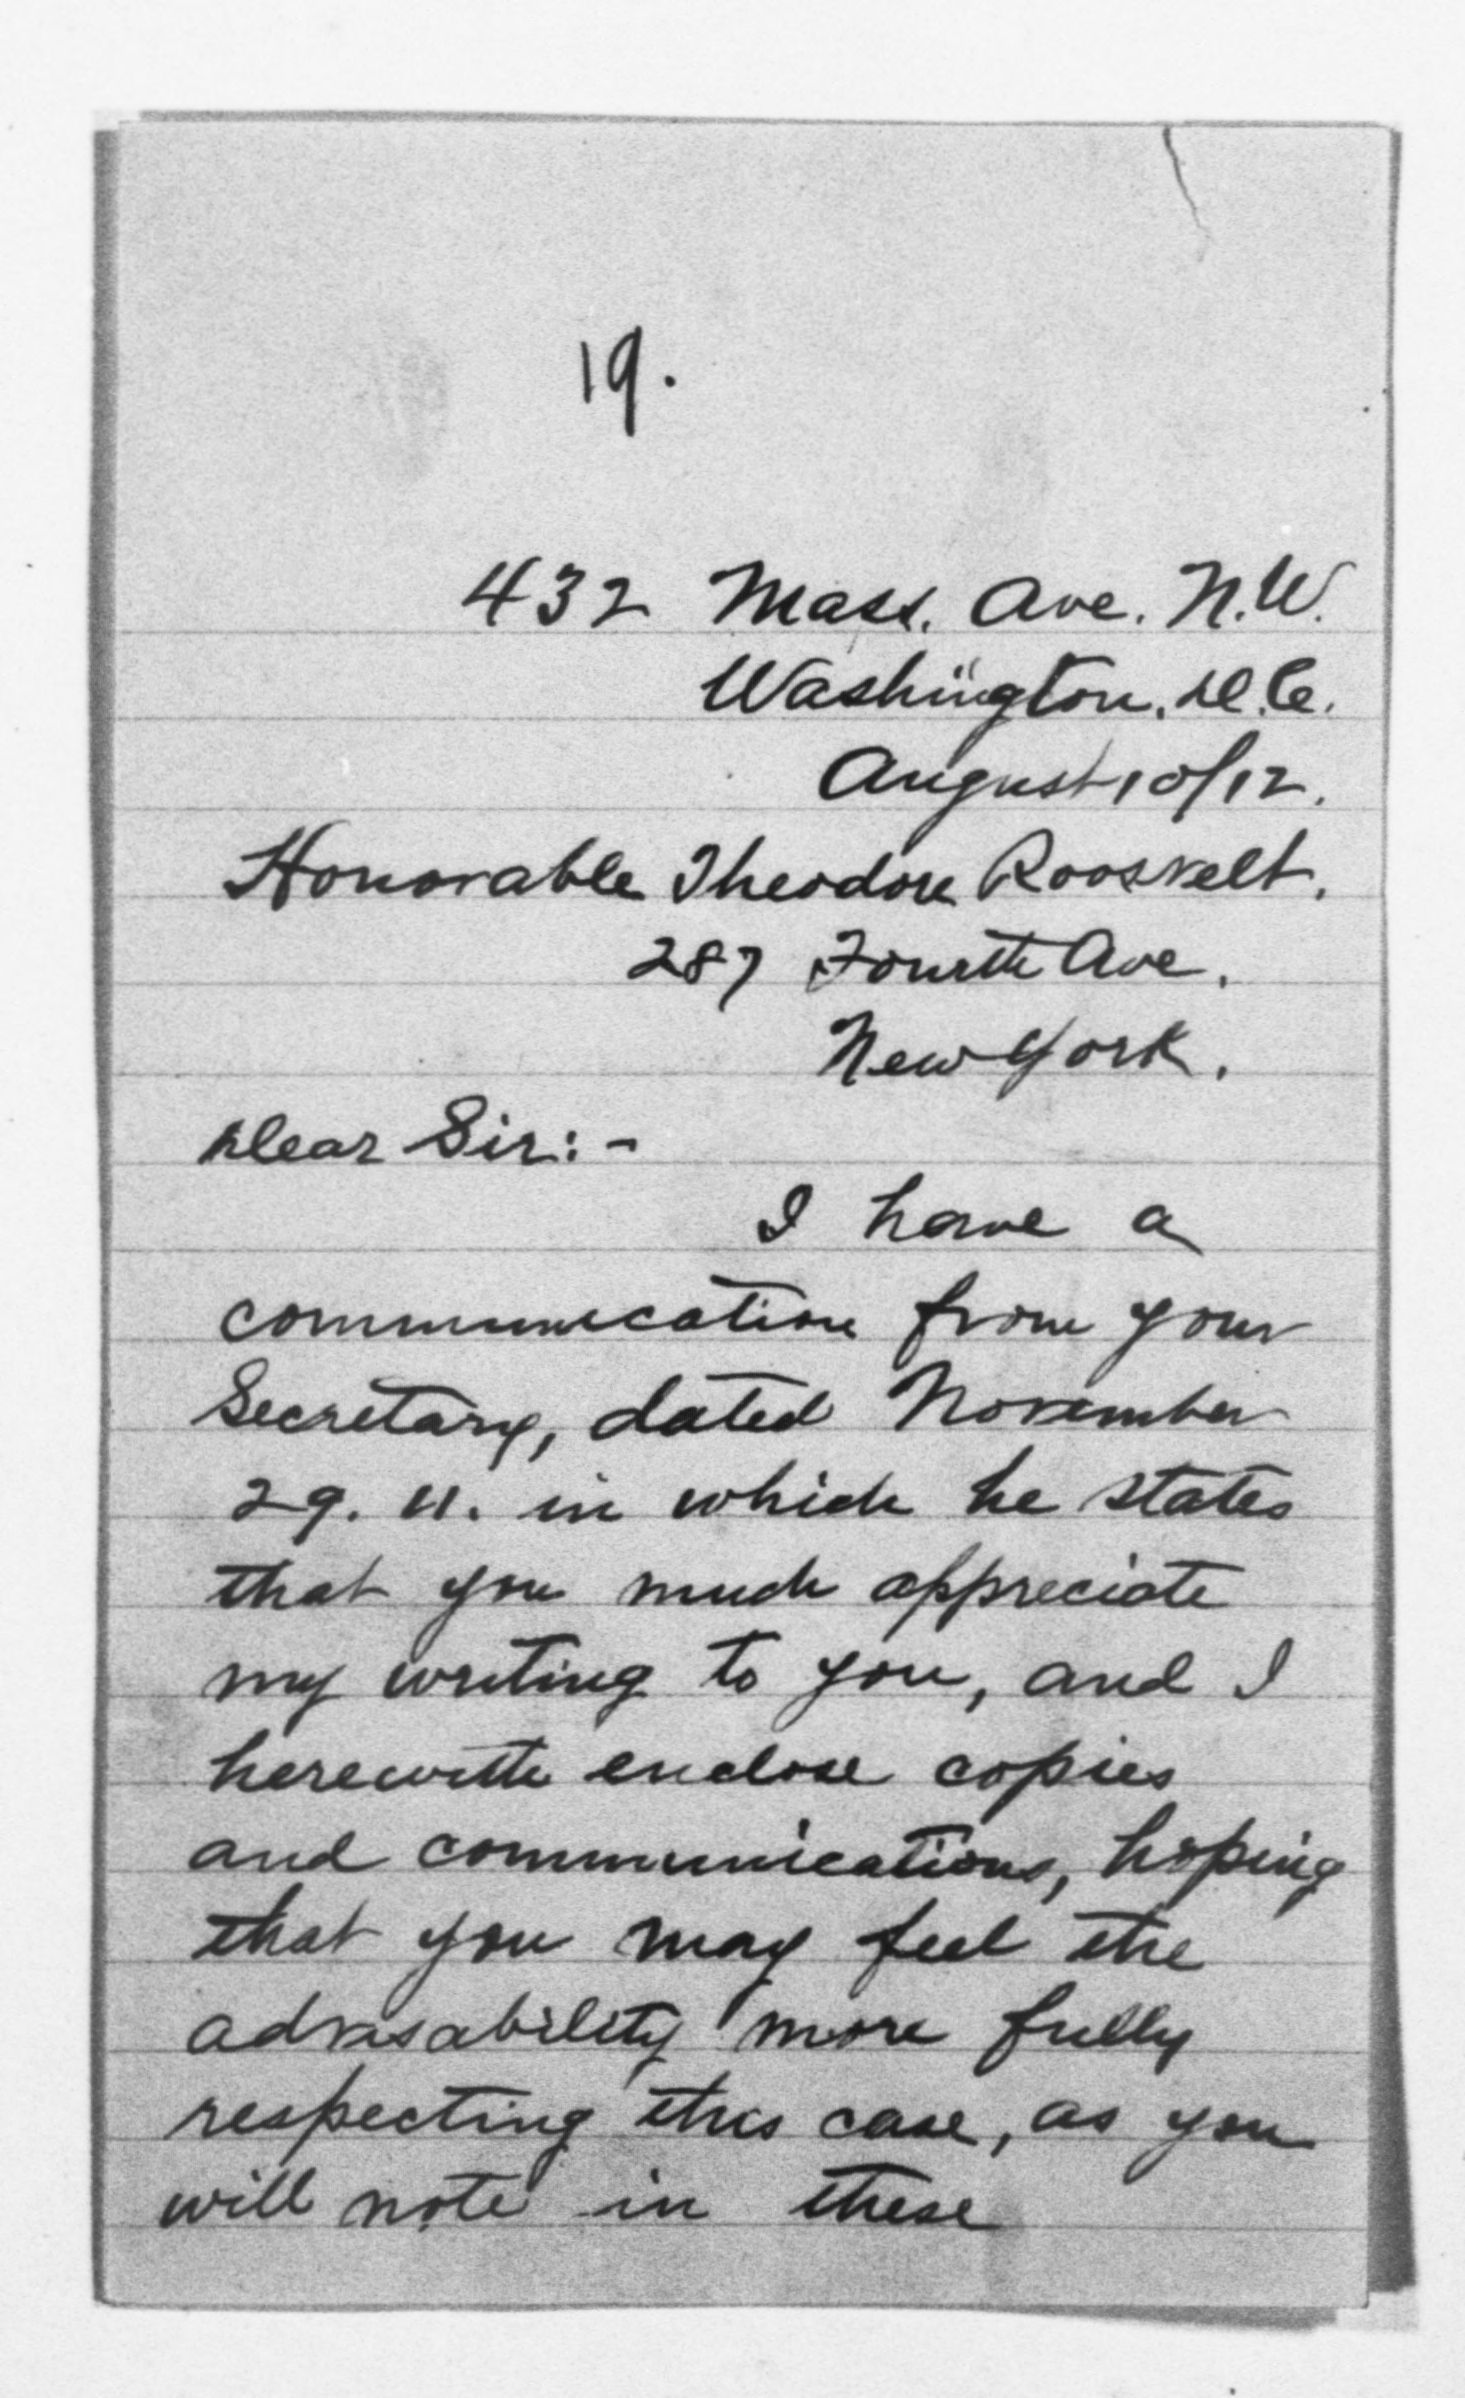 19.
432 Mass. Ave. N.W.
Washington, D.C.
August 10/12.
Honorable Theodore Roosvelt.
287 Fourth Ave.
New York.
Dear Sir:-
I have a
communication from your
Secretary, dated November
29. 11. in which he states
that you much appreciate
my writing to you, and I
herewith enclose copies
and communications, hoping
that you may feel the
advisability more fully
respecting this case, as you
will note in these